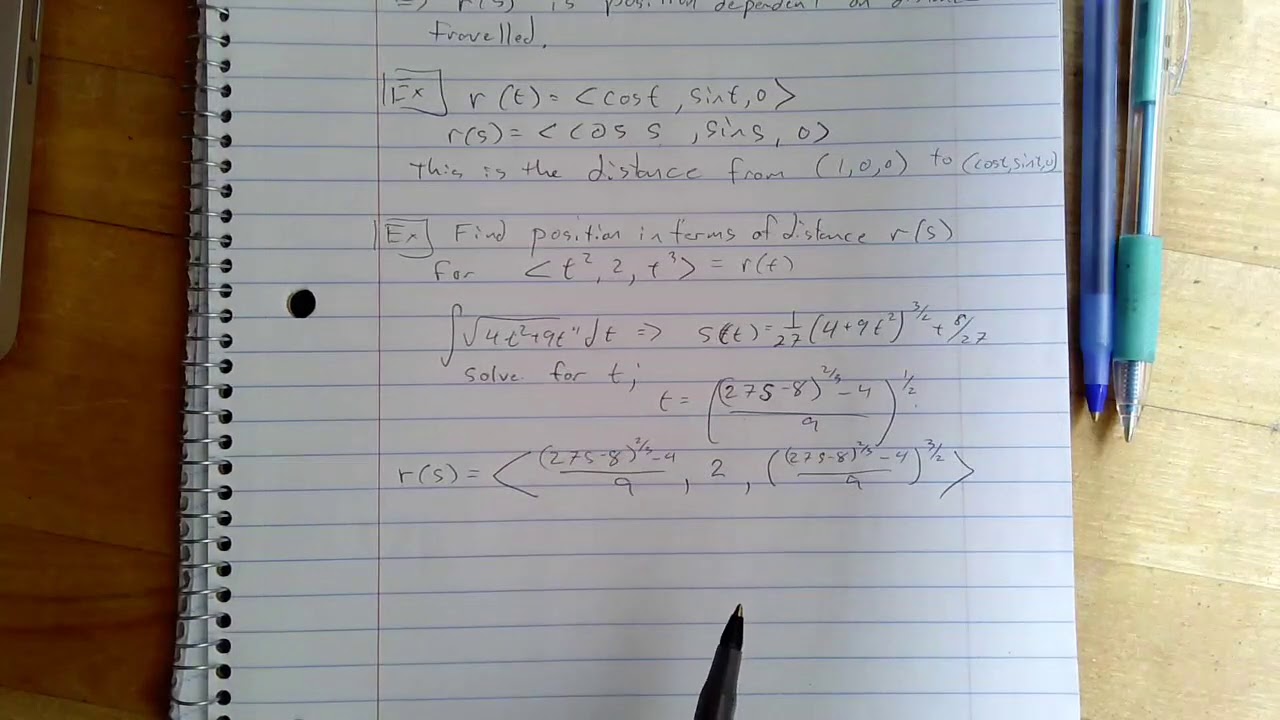 => r(s) is position dependent on distance
travelled.
Ex r(t) = <cost, sint, 0>
r(s) = <cos s, sins, 0>
this is the distance from (1,0,0) to (cost,sint,0)
Ex Find position in terms of distance r(s)
for <t², 2, t³> = r(t)
∫√4t²+9t⁴ dt => s(t) = 1/27 (4+9t²)^3/2 + 8/27
solve for t;
t = ((27s-8)^2/3 - 4 / 9)^1/2
r(s) = <(27s-8)^2/3 - 4 / 9, 2, ((27s-8)^2/3 - 4 / 9)^3/2>